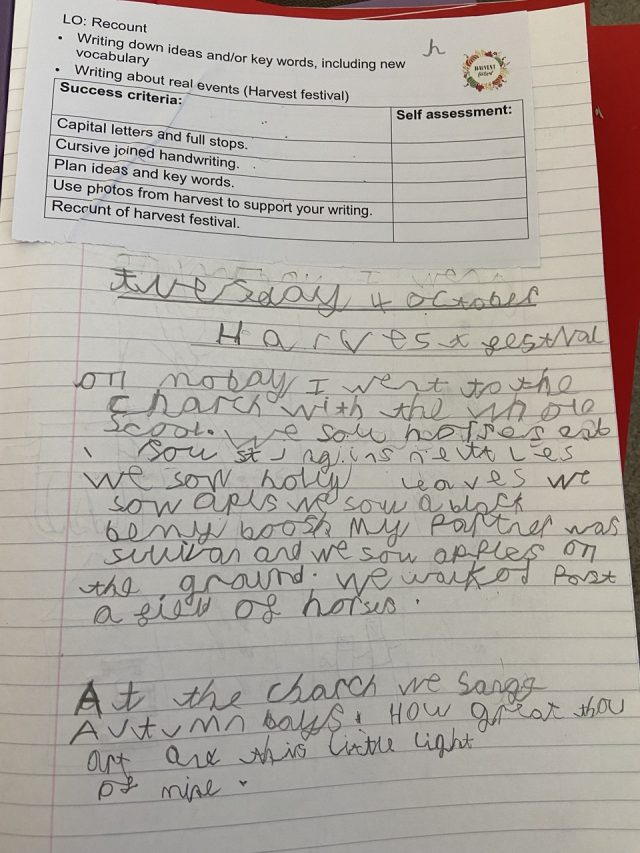 LO: Recount
• Writing down ideas and/or key words, including new
vocabulary
• Writing about real events (Harvest festival)
h
HARVEST
festival
Success criteria:
Self assessment:
Capital letters and full stops.
Cursive joined handwriting.
Plan ideas and key words.
Use photos from harvest to support your writing.
Recount of harvest festival.
tuesday 4 october
Harvest festival
on moday I went to the
charch with the whole
scool. we sow horses
sow stinging nettles
we sow holly leaves we
sow apls we sow a black
berry boosh My Partner was
and we sow apples on
the ground. we walked Past
a field of horses.
At the charch we sangg
Autumn days. How great thou
art and this little light
of mine.